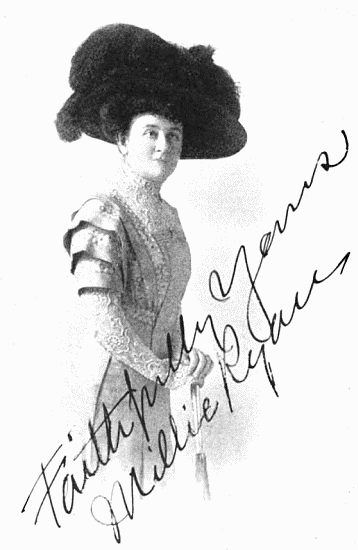 Faithfully Yours
Millie Ryan